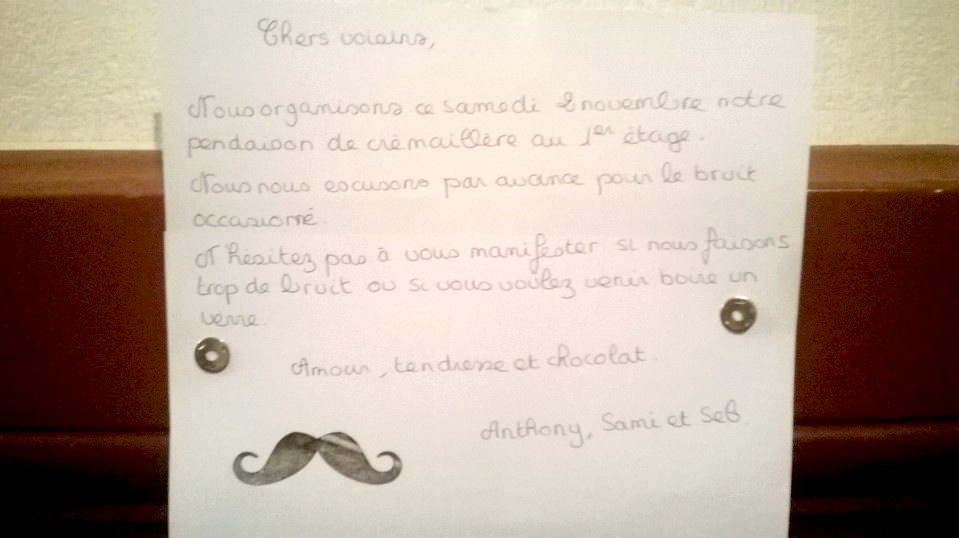 Chers voisins,
Nous organisons ce samedi 8 novembre notre
pendaison de crémaillère au 1er étage.
Nous nous escusons par avance pour le bruit
occasionné.
N'hésitez pas à vous manifester si nous faisons
trop de bruit ou si vous voulez venir boire un
verre
Amour, tendresse et chocolat.
Anthony, Sami et Seb